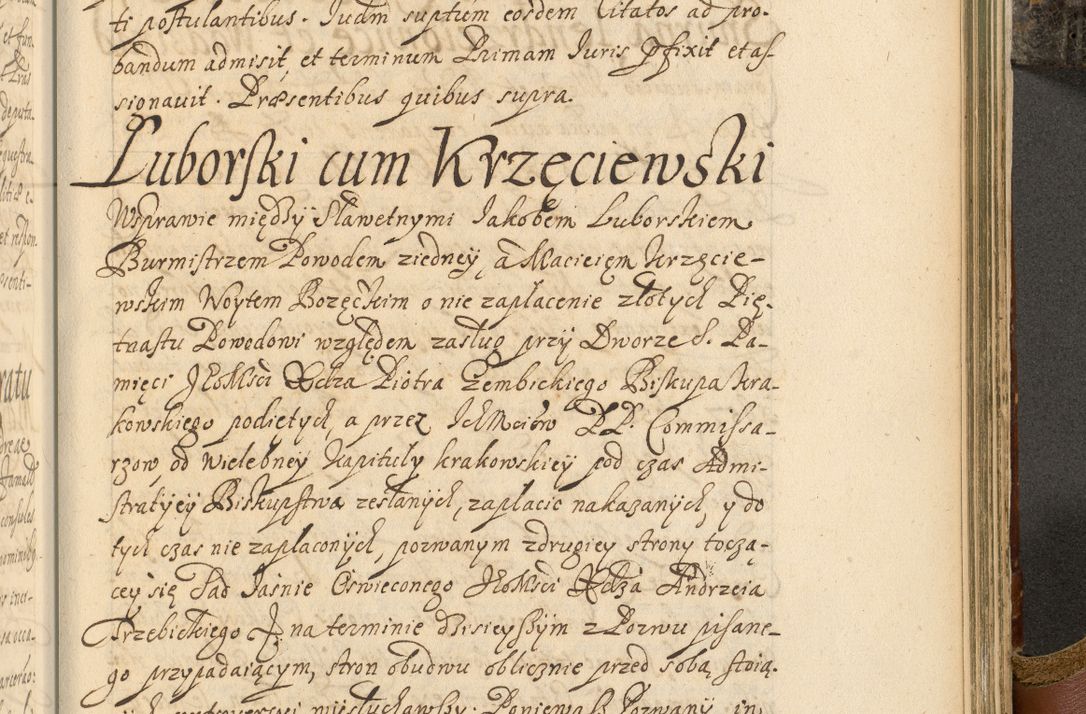 ti postulantibus. Iudm suptum eosdem Citatos ad pro-
bandum admisit, et terminum Primam Iuris Pfixit et as-
signavit. Præsentibus quibus supra.
Luborski cum Krzęciewski
Wsprawie między Sławetnymi Iakobem Luborskiem
Burmistrzem Powodem ziedney, a Macieiem Krzęcie-
wskim Woytem Bozęckim o nie zapłacenie złotych Pię-
tnastu Powodowi względem zasług przy Dworze S. Pa-
mięci JEoMsci Xdza Piotra Gembickiego Biskupa Kra-
kowskiego podiętych, a przez IchMciów PP. Commissa-
rzow od Wielebney Kapituły krakowskiey pod czas Admi-
stratyey Biskupstwa zesłanych, zapłacic nakazanych, y do
tych czas nie zapłaconych, pozwanym zdrugiey strony toczą-
cey się Sąd Iasnie Oswieconego JEoMsci Xdza Andrzeia
Trzebickiego na terminie dzisieyszym z Pozwu pisane-
go przypadaiącym, stron obudwu oblicznie przed sobą stoią-
Poniewasz Pozwany in